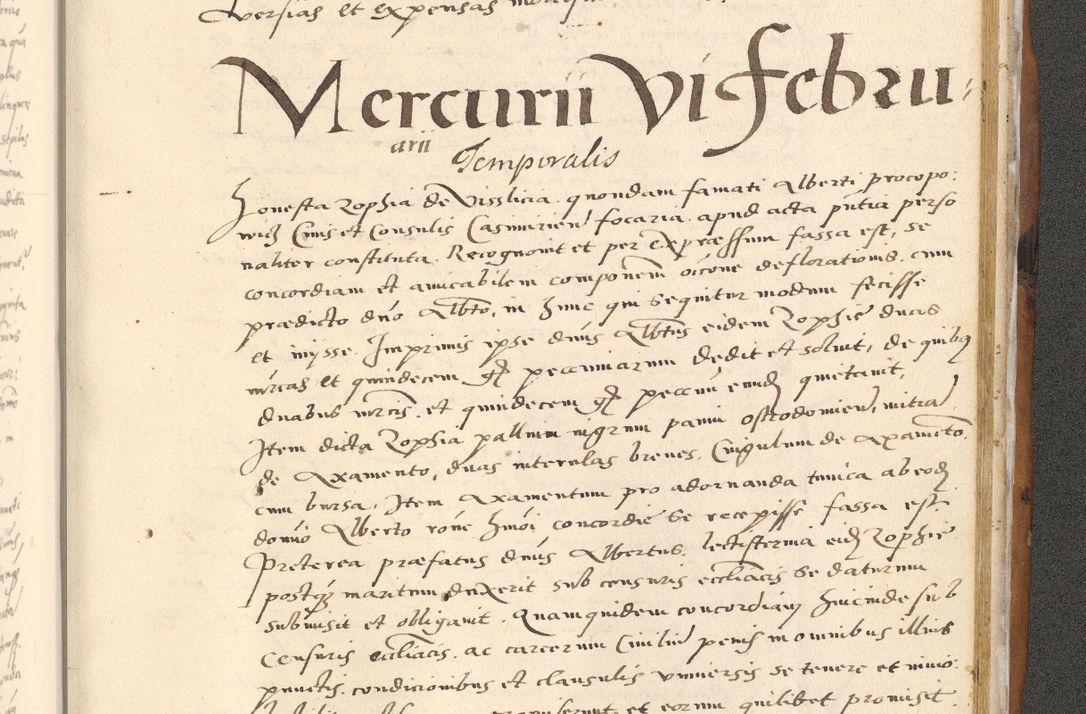 versias et expensas
Mercurii vi Febru-
arii
Temporalis
Honesta Zophia de Visslicia quondam famati Alberti procopo:
wicz Civis et Consulis Casmirien focaria apud acta pntia perso
naliter constituta. Recognovit et per expraessum fassa est, se
concordiam et amicabilem componem oicone deflorationis cum
praedicto dno Albto, in hunc qui sequitur modum fecisse
et inysse. Imprimis ipse dnus Albtus eidem Zophie duas
mrcas et quindecem gr pecuniarum dedit et soluit, de quibus
duabus mrcis et quindecem gr pecunie eundem quietavit,
Item dicta Zophia pallium nigrum panni ostrodomien, mitra
de Axamento, duas interulas breves, Cingulum de Axamento
cum bursa, Item Axamentum pro adornanda tunica ab eodem
domino Alberto rone hmoi concordie se recepisse fassa est.
Preterea praefatus dnus Albertus, lectisternia eidem Zophie
postquam maritum duxerit sub censuris eccliacis se daturum
submisit et obligavit. Quamquidem concordiam hincinde sub
Censuris eccliacis ac carcerum Civilium penis in omnibus illius
punctis, condicionibus et clausulis vniversis se tenere et invio:
et eorum quilibet promisit